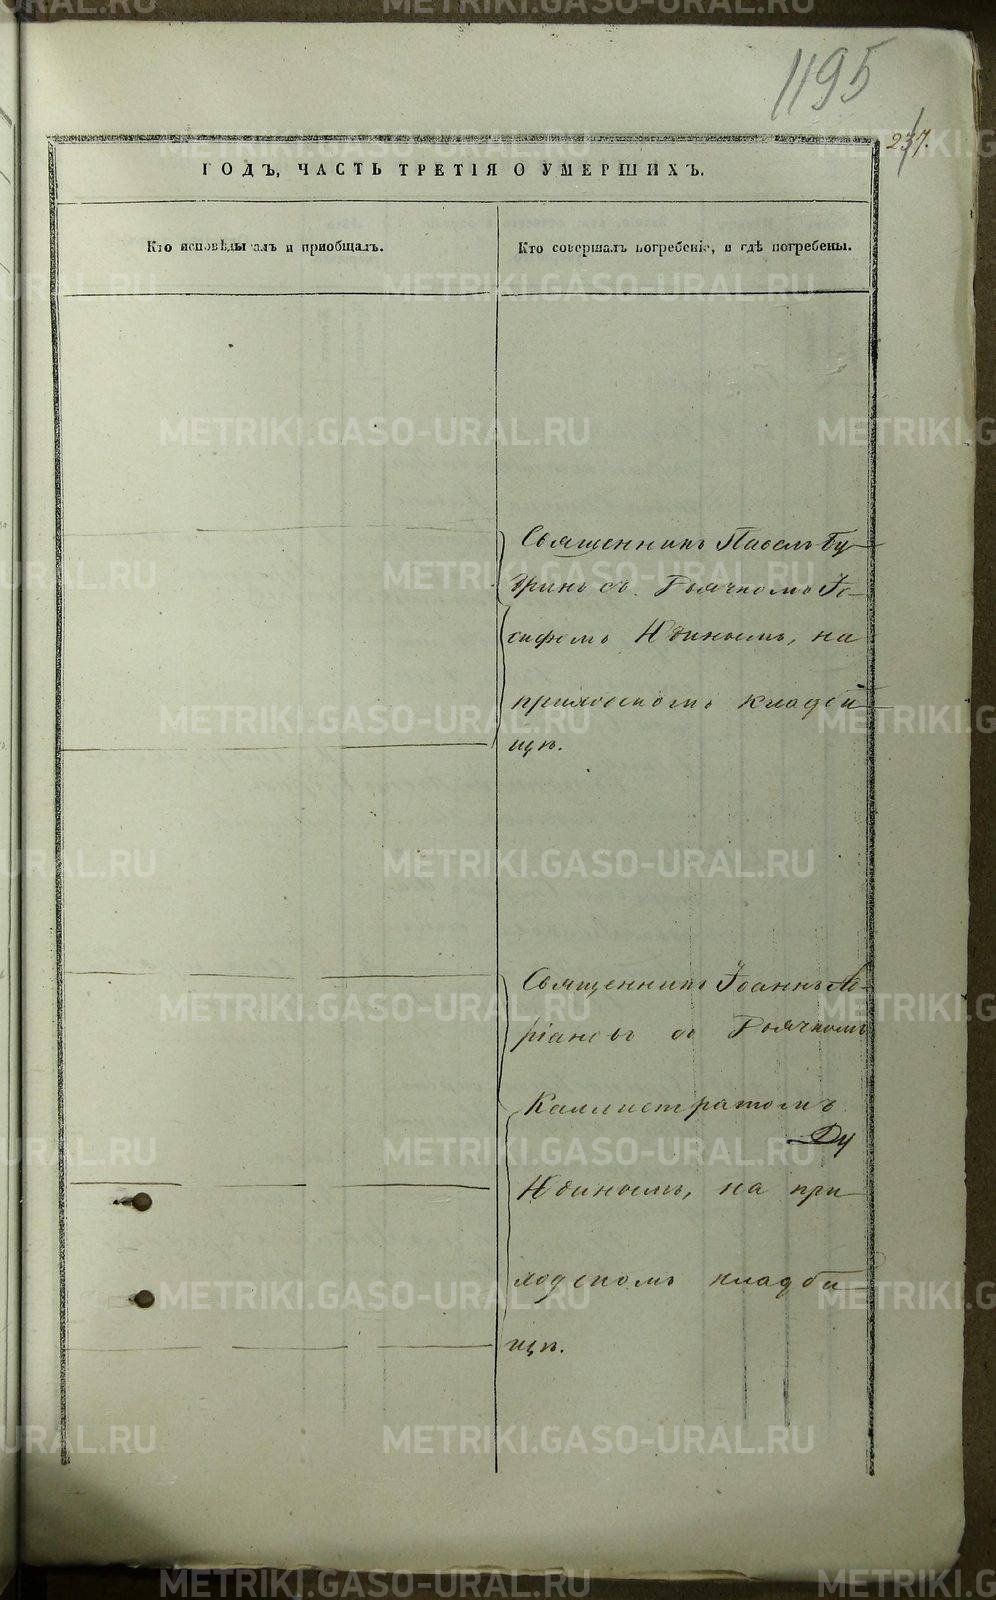 1195
237.
ГОДЪ, ЧАСТЬ ТРЕТІЯ О УМЕРШИХЪ.
Кто исповѣдывалъ и приобщалъ.
Кто совершалъ погребеніе, и гдѣ погребены.
Священникъ Павелъ Бу-
дринъ съ Дьячкомъ Іо-
сифомъ Юдинымъ, на
приходскомъ кладби
щѣ.
Священникъ Іоаннъ
съ Дьячкомъ
Каллистратомъ
Юдинымъ, на при-
ходскомъ кладби
щѣ.
METRIKI.GASO-URAL.RU